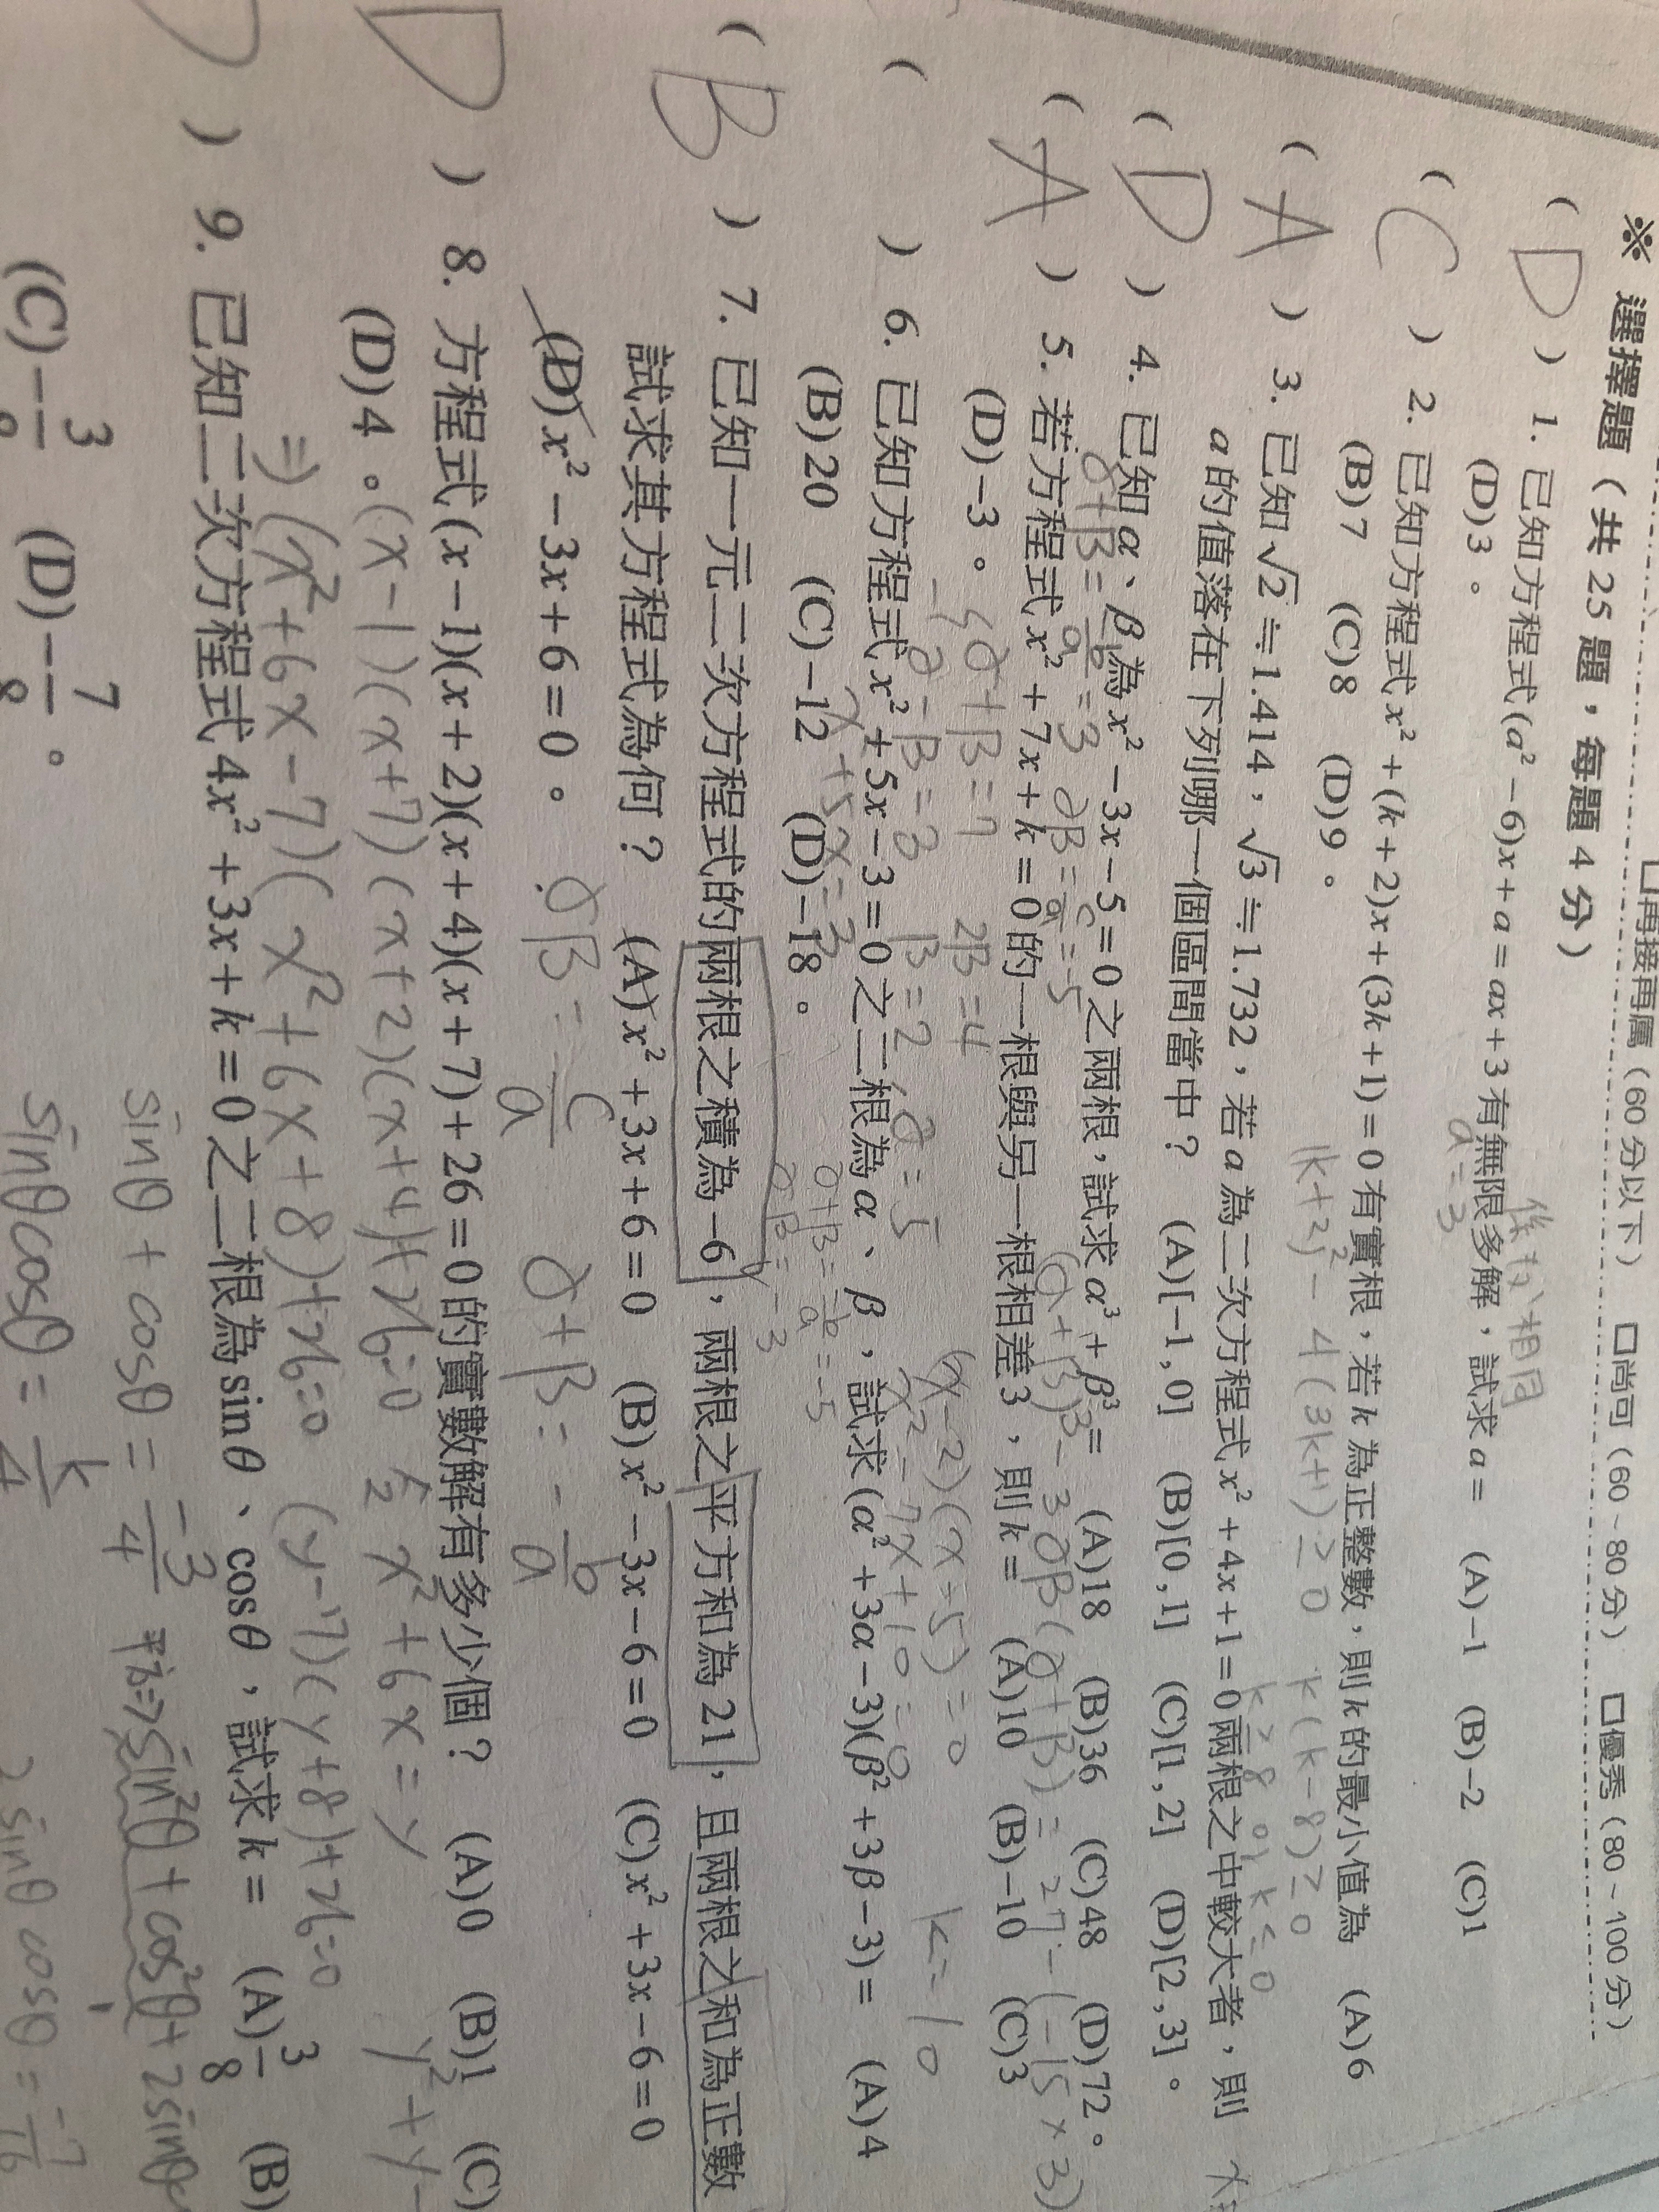 □再接再厲（60 分以下） □尚可（60 ~ 80 分） □優秀（80 ~ 100 分）
※ 選擇題（共 25 題，每題 4 分）
( D ) 1. 已知方程式(a² − 6)x + a = ax + 3 有無限多解，試求 a = (A)−1 (B)−2 (C)1
(D)3 。
a = 3
相同
( C ) 2. 已知方程式 x² + (k + 2)x + (3k + 1) = 0 有實根，若 k 為正整數，則 k 的最小值為 (A)6
(B)7 (C)8 (D)9 。
(k+2)² − 4(3k+1) ≥ 0
k(k−8) ≥ 0
k ≥ 8 or k ≤ 0
( A ) 3. 已知 √2 ≒ 1.414，√3 ≒ 1.732，若 a 為二次方程式 x² + 4x + 1 = 0 兩根之中較大者，則
a 的值落在下列哪一個區間當中？ (A)[−1 , 0] (B)[0 , 1] (C)[1 , 2] (D)[2 , 3] 。
( D ) 4. 已知 α、β 為 x² − 3x − 5 = 0 之兩根，試求 α³ + β³ = (A)18 (B)36 (C)48 (D)72 。
α+β = −b/a = 3 αβ = c/a = −5 (α+β)³ − 3αβ(α+β) = 27 − (−15×3)
( A ) 5. 若方程式 x² + 7x + k = 0 的一根與另一根相差 3，則 k = (A)10 (B)−10 (C)3
(D)−3 。
α+β = 7 2β = 4 (x−2)(x−5) = 0
α−β = 3 β = 2 , α = 5 x² − 7x + 10 = 0 k = 10
( ) 6. 已知方程式 x² + 5x − 3 = 0 之二根為 α、β，試求(α² + 3α − 3)(β² + 3β − 3) = (A)4
(B)20 (C)−12 (D)−18 。
α+β = −b/a = −5
αβ = −3
( B ) 7. 已知一元二次方程式的兩根之積為 −6，兩根之平方和為 21，且兩根之和為正數
試求其方程式為何？ (A) x² + 3x + 6 = 0 (B) x² − 3x − 6 = 0 (C) x² + 3x − 6 = 0
(D) x² − 3x + 6 = 0 。
αβ = c/a α+β = −b/a
( D ) 8. 方程式(x − 1)(x + 2)(x + 4)(x + 7) + 26 = 0 的實數解有多少個？ (A)0 (B)1 (C)
(D)4 。
(x−1)(x+7)(x+2)(x+4)+26=0 令 x² + 6x = y
⇒ (x²+6x−7)(x²+6x+8)+26=0 (y−7)(y+8)+26=0 y²+y−
( D ) 9. 已知二次方程式 4x² + 3x + k = 0 之二根為 sin θ、cos θ，試求 k = (A) 3/8 (B)
(C) − 3/8 (D) − 7/8 。
sinθ + cosθ = −3/4 平方 ⇒ sin²θ + cos²θ + 2sinθ
sinθcosθ = k/4 2 sinθ cosθ = −7/16